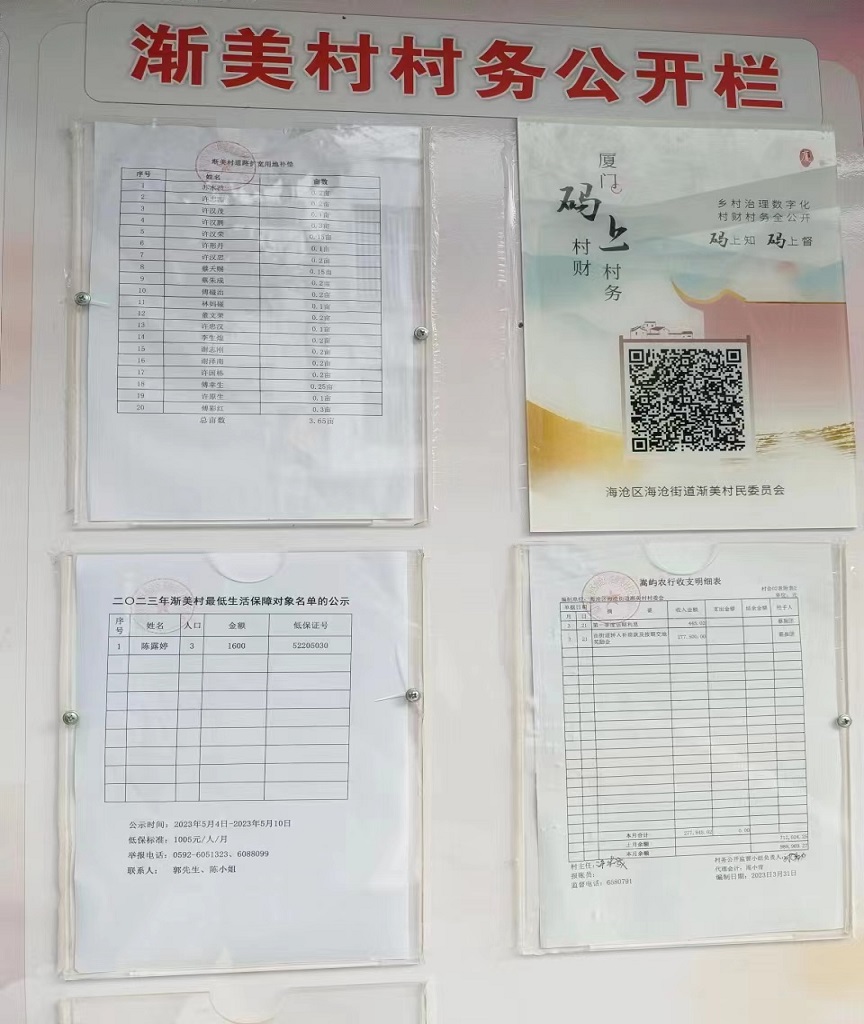 渐美村村务公开栏
渐美村道路扩宽用地补偿
序号 姓名 亩数
1 0.2亩
2 0.2亩
3 许汉茂
4 许汉鹏 0.2亩
5 许汉荣 0.15亩
6 许彤月 0.1亩
7 许汉思 0.2亩
8 蔡天赐 0.15亩
9 0.2亩
10 傅福出 0.2亩
11 0.1亩
12 0.2亩
13 许忠汉 0.1亩
14 0.2亩
15 谢志刚 0.2亩
16 谢泽南 0.2亩
17 许国栋 0.2亩
18 傅拿生 0.25亩
19 许原生 0.1亩
20 傅彩红 0.3亩
总亩数 3.65亩
厦门
码上
村财 村务
乡村治理数字化
村财村务全公开
码上知 码上督
海沧区海沧街道渐美村民委员会
二〇二三年渐美村最低生活保障对象名单的公示
序号 姓名 人口 金额 低保证号
1 陈露婷 3 1600 52205030
公示时间：2023年5月4日-2023年5月10日
低保标准：1005元/人/月
举报电话：0592-6051323、6088099
联系人： 郭先生、陈小姐
嵩屿农行收支明细表
编制单位：海沧区海沧街道渐美村村委会
单位：元
单据日期 摘 要 收入金额 支出金额 结余金额 经手人
月 日
3 21 第一季度活期利息
本月合计
上月余额
本月余额
村主任：
报账员：
监督电话：6580791
村务公开监督小组负责人：
代理会计：周小雪
编制日期：2023年3月31日